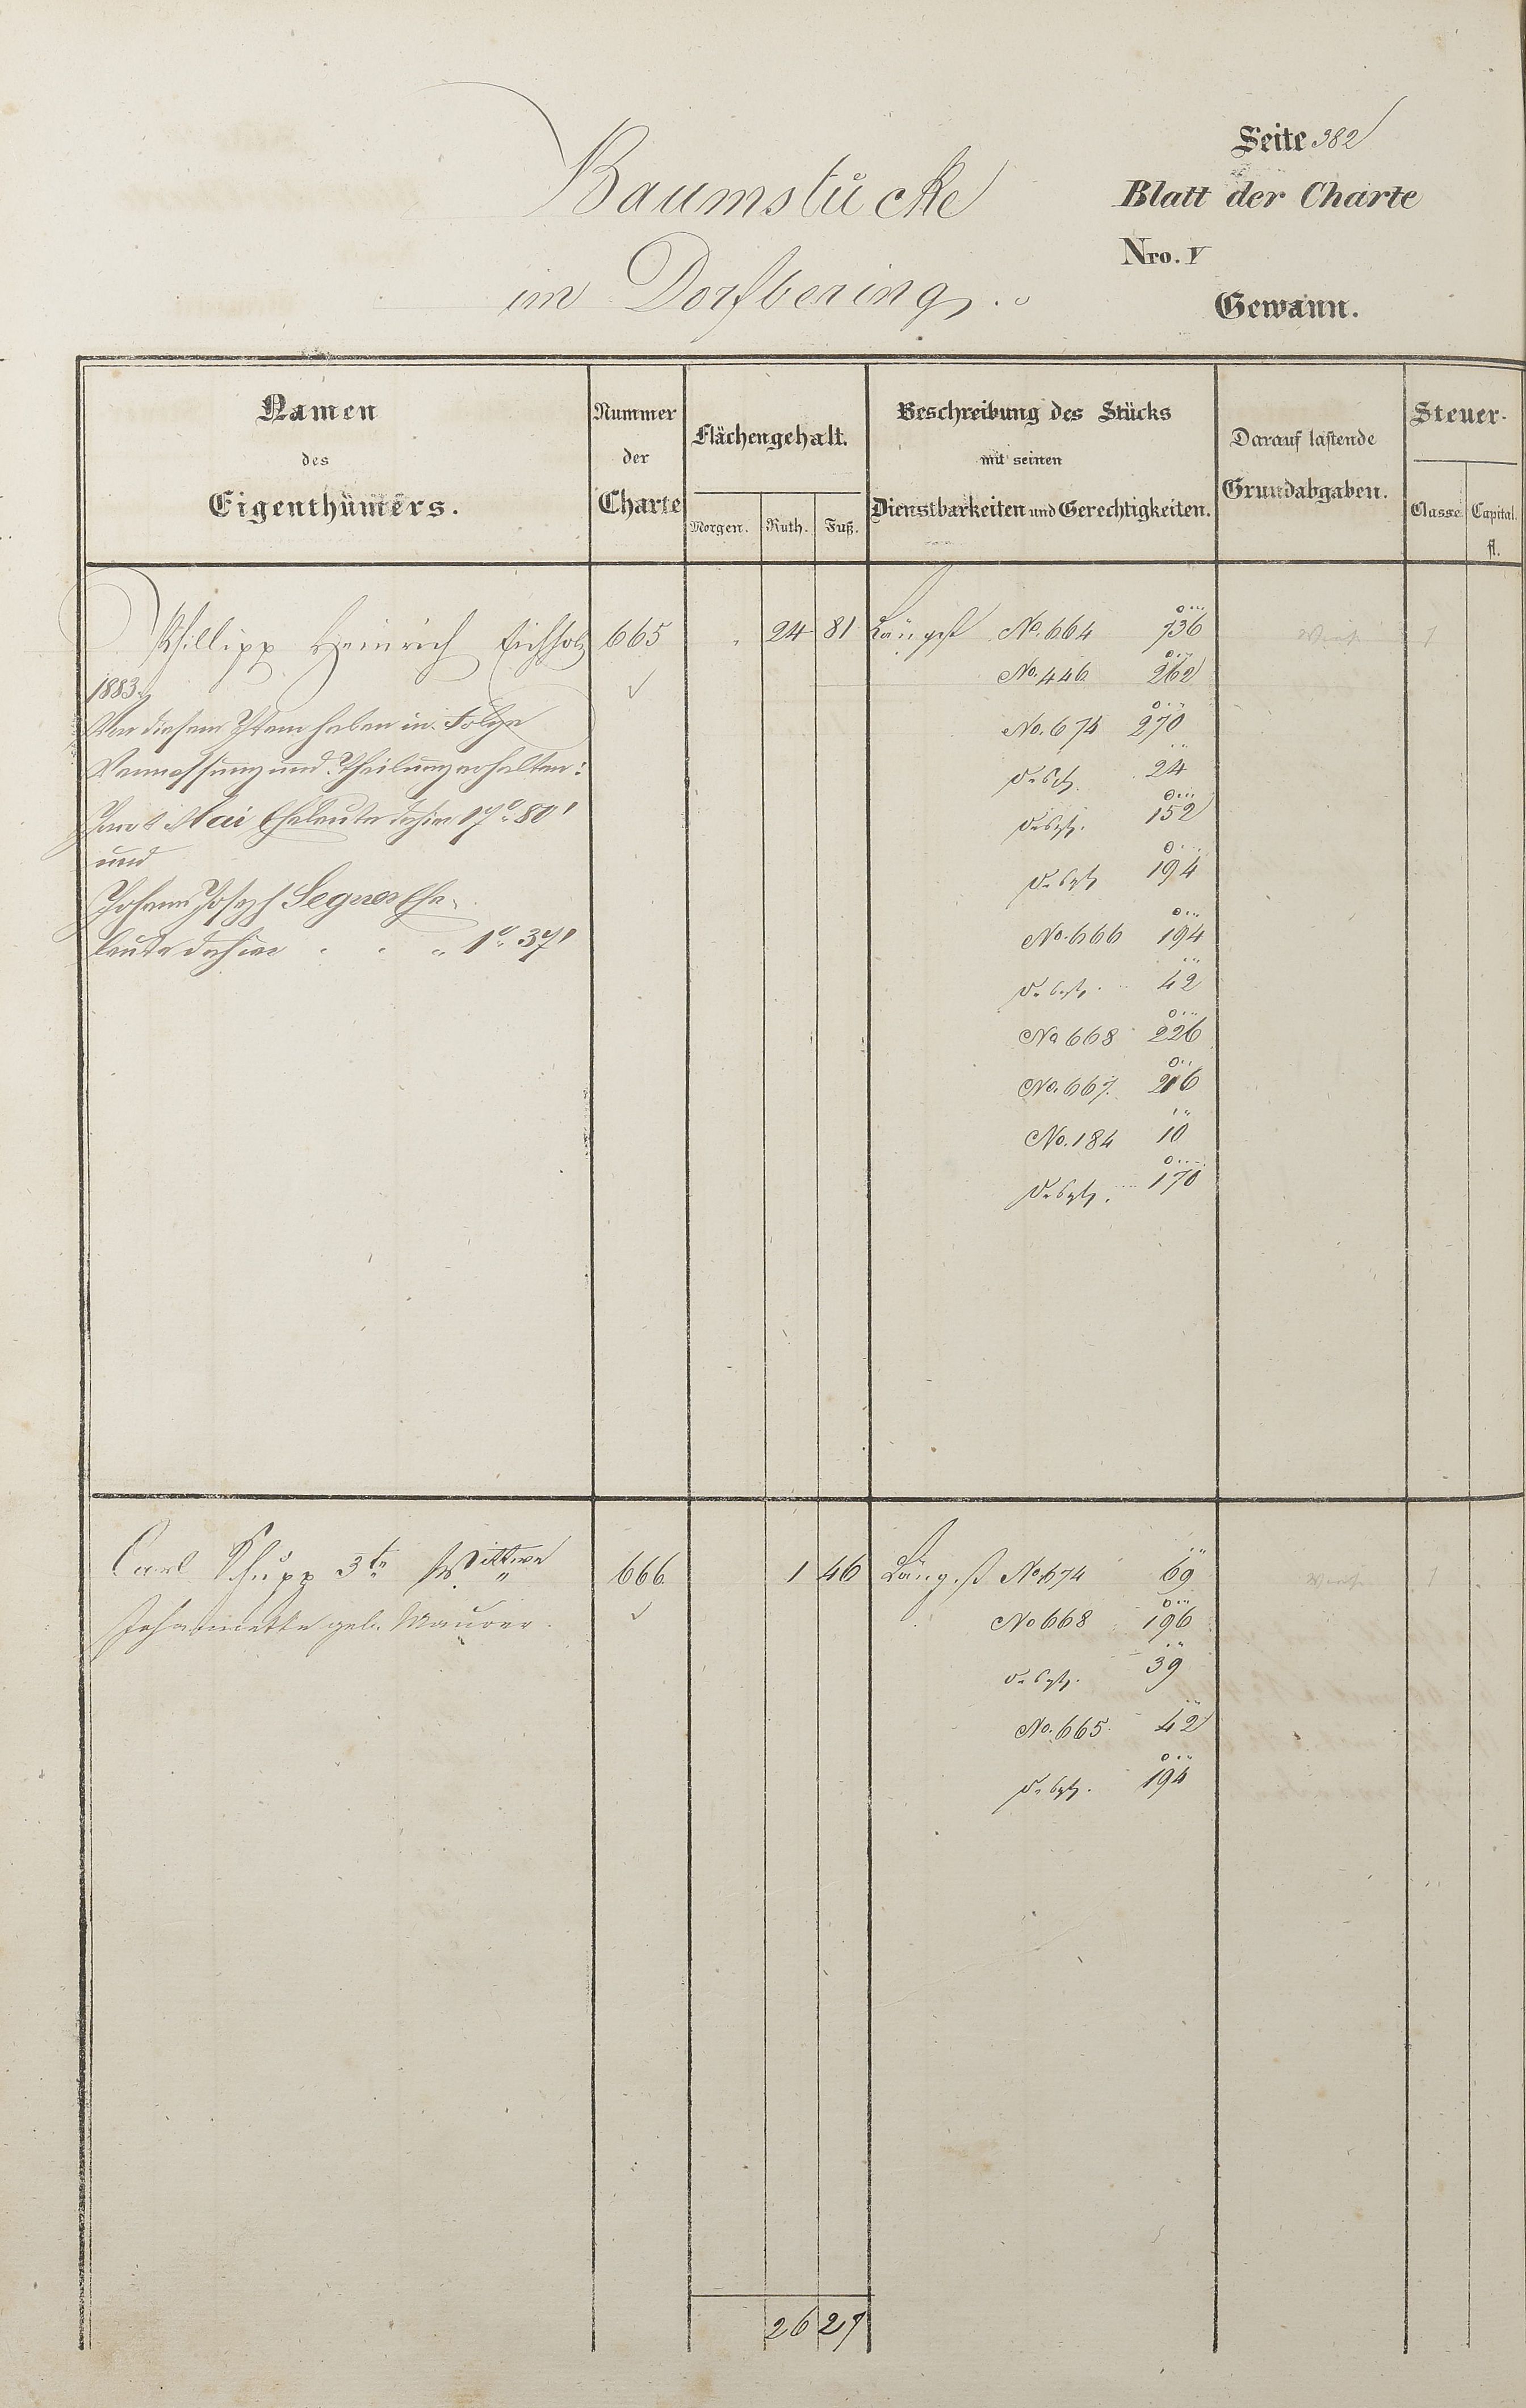 Seite 382
Baumstücke
Blatt der Charte
Nro. V
im Dorfbering.
Gewann.
Namen
des
Eigenthümers.
Nummer
der
Charte
Flächengehalt.
Morgen. Ruth. Fuß.
Beschreibung des Stücks
mit seinen
Dienstbarkeiten und Gerechtigkeiten.
Darauf lastende
Grundabgaben.
Steuer-
Classe. Capital.
fl.
Phillipp Heinrich Eichholz 665 24 81 Längest No. 664 736
1883. No. 446 262
Von diesem Item haben in Folge No. 674 270
Vermessung und Theilung erhalten: Desgl. 24
Mai Eheleute dahier 17° 80' Desgl. 152
und Desgl. 194
Johann Joseph Segner Ehe-
leute dahier 1° 37' No. 666 194
Desgl. 42
No 668 226
No. 667. 216
No. 184 10
Desgl. 170
Carl Schupp 3te Wittwe 666 1 46 Längest No. 674 69
Johannette geb. Maurer. No 668 196
Desgl. 39
No. 665 42
Desgl. 194
26 27